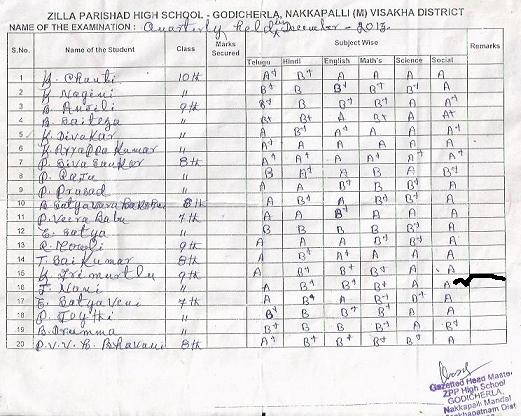 ZILLA PARISHAD HIGH SCHOOL - GODICHERLA, NAKKAPALLI (M) VISAKHA DISTRICT
NAME OF THE EXAMINATION : Quarterly held December - 2013
S.No. Name of the Student Class Marks Secured Subject Wise Remarks
Telugu Hindi English Math's Science Social
1 K. Chanti 10th A+ B+ A A A A
2 K. Nagini " B+ B B+ A B+ A
3 9th B+ B A+
4 " B+ B+ A B+ A A+
5 K. Divakar " A B+ A+ A A A
6 K. Ayyappa Kumar " A A A A A A
7 P. Siva Sankar 8th A+ A+ A A A+ A+
8 P. Raju " B A+ B A B+
9 P. Prasad " A A B+ B B+ A
10 8th A B+ A B+ A A
11 P. Veera Babu 7th A A B+ A A A
12 E. Satya " B B B B B+ A
13 9th A A A B+ B+ A
14 T. Sai Kumar 8th A B+ A+ A A A
15 9th A B+ B+ B+ A A
16 T. Nani " A B+ B+ B+ A A
17 E. Satyaveni 7th A B+ A A+ A
18 " B+ B B B+ A A
19 " B+ B B A B+
20 8th A+ B+ B+ A A
Gazetted Head Master
ZPP High School
GODICHERLA,
Nakkapalli Mandal
Visakhapatnam Dist